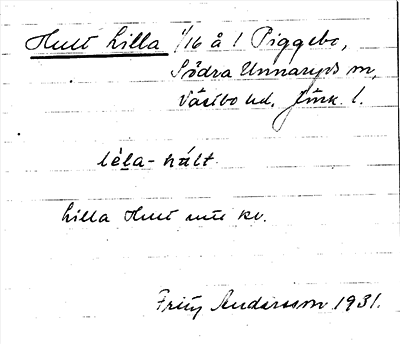 Hult Lilla 1/16 å 1 Piggebo,
Södra Unnaryds sn,
Västbo hd, Jönk. l.
lèla-hált.
Lilla Hult kv.
Fritz Andersson 1931.